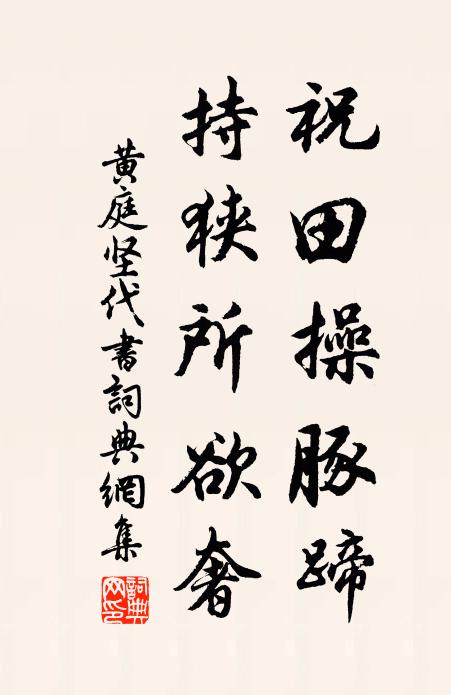 祝田操豚蹄
持狹所欲奢
黄庭坚代書詞典網集
詞典网印